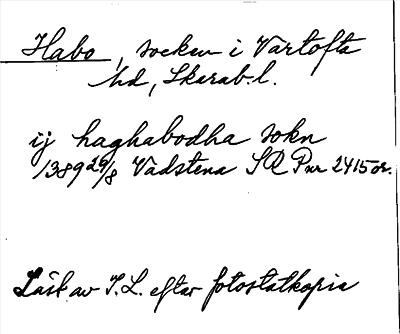 Habo, socken i Vartofta
hd, Skarab.l.
ij haghabodha sokn
1389 26/8 Vadstena SRP nr 2415 or.
Läst av I. L. efter fotostatkopia